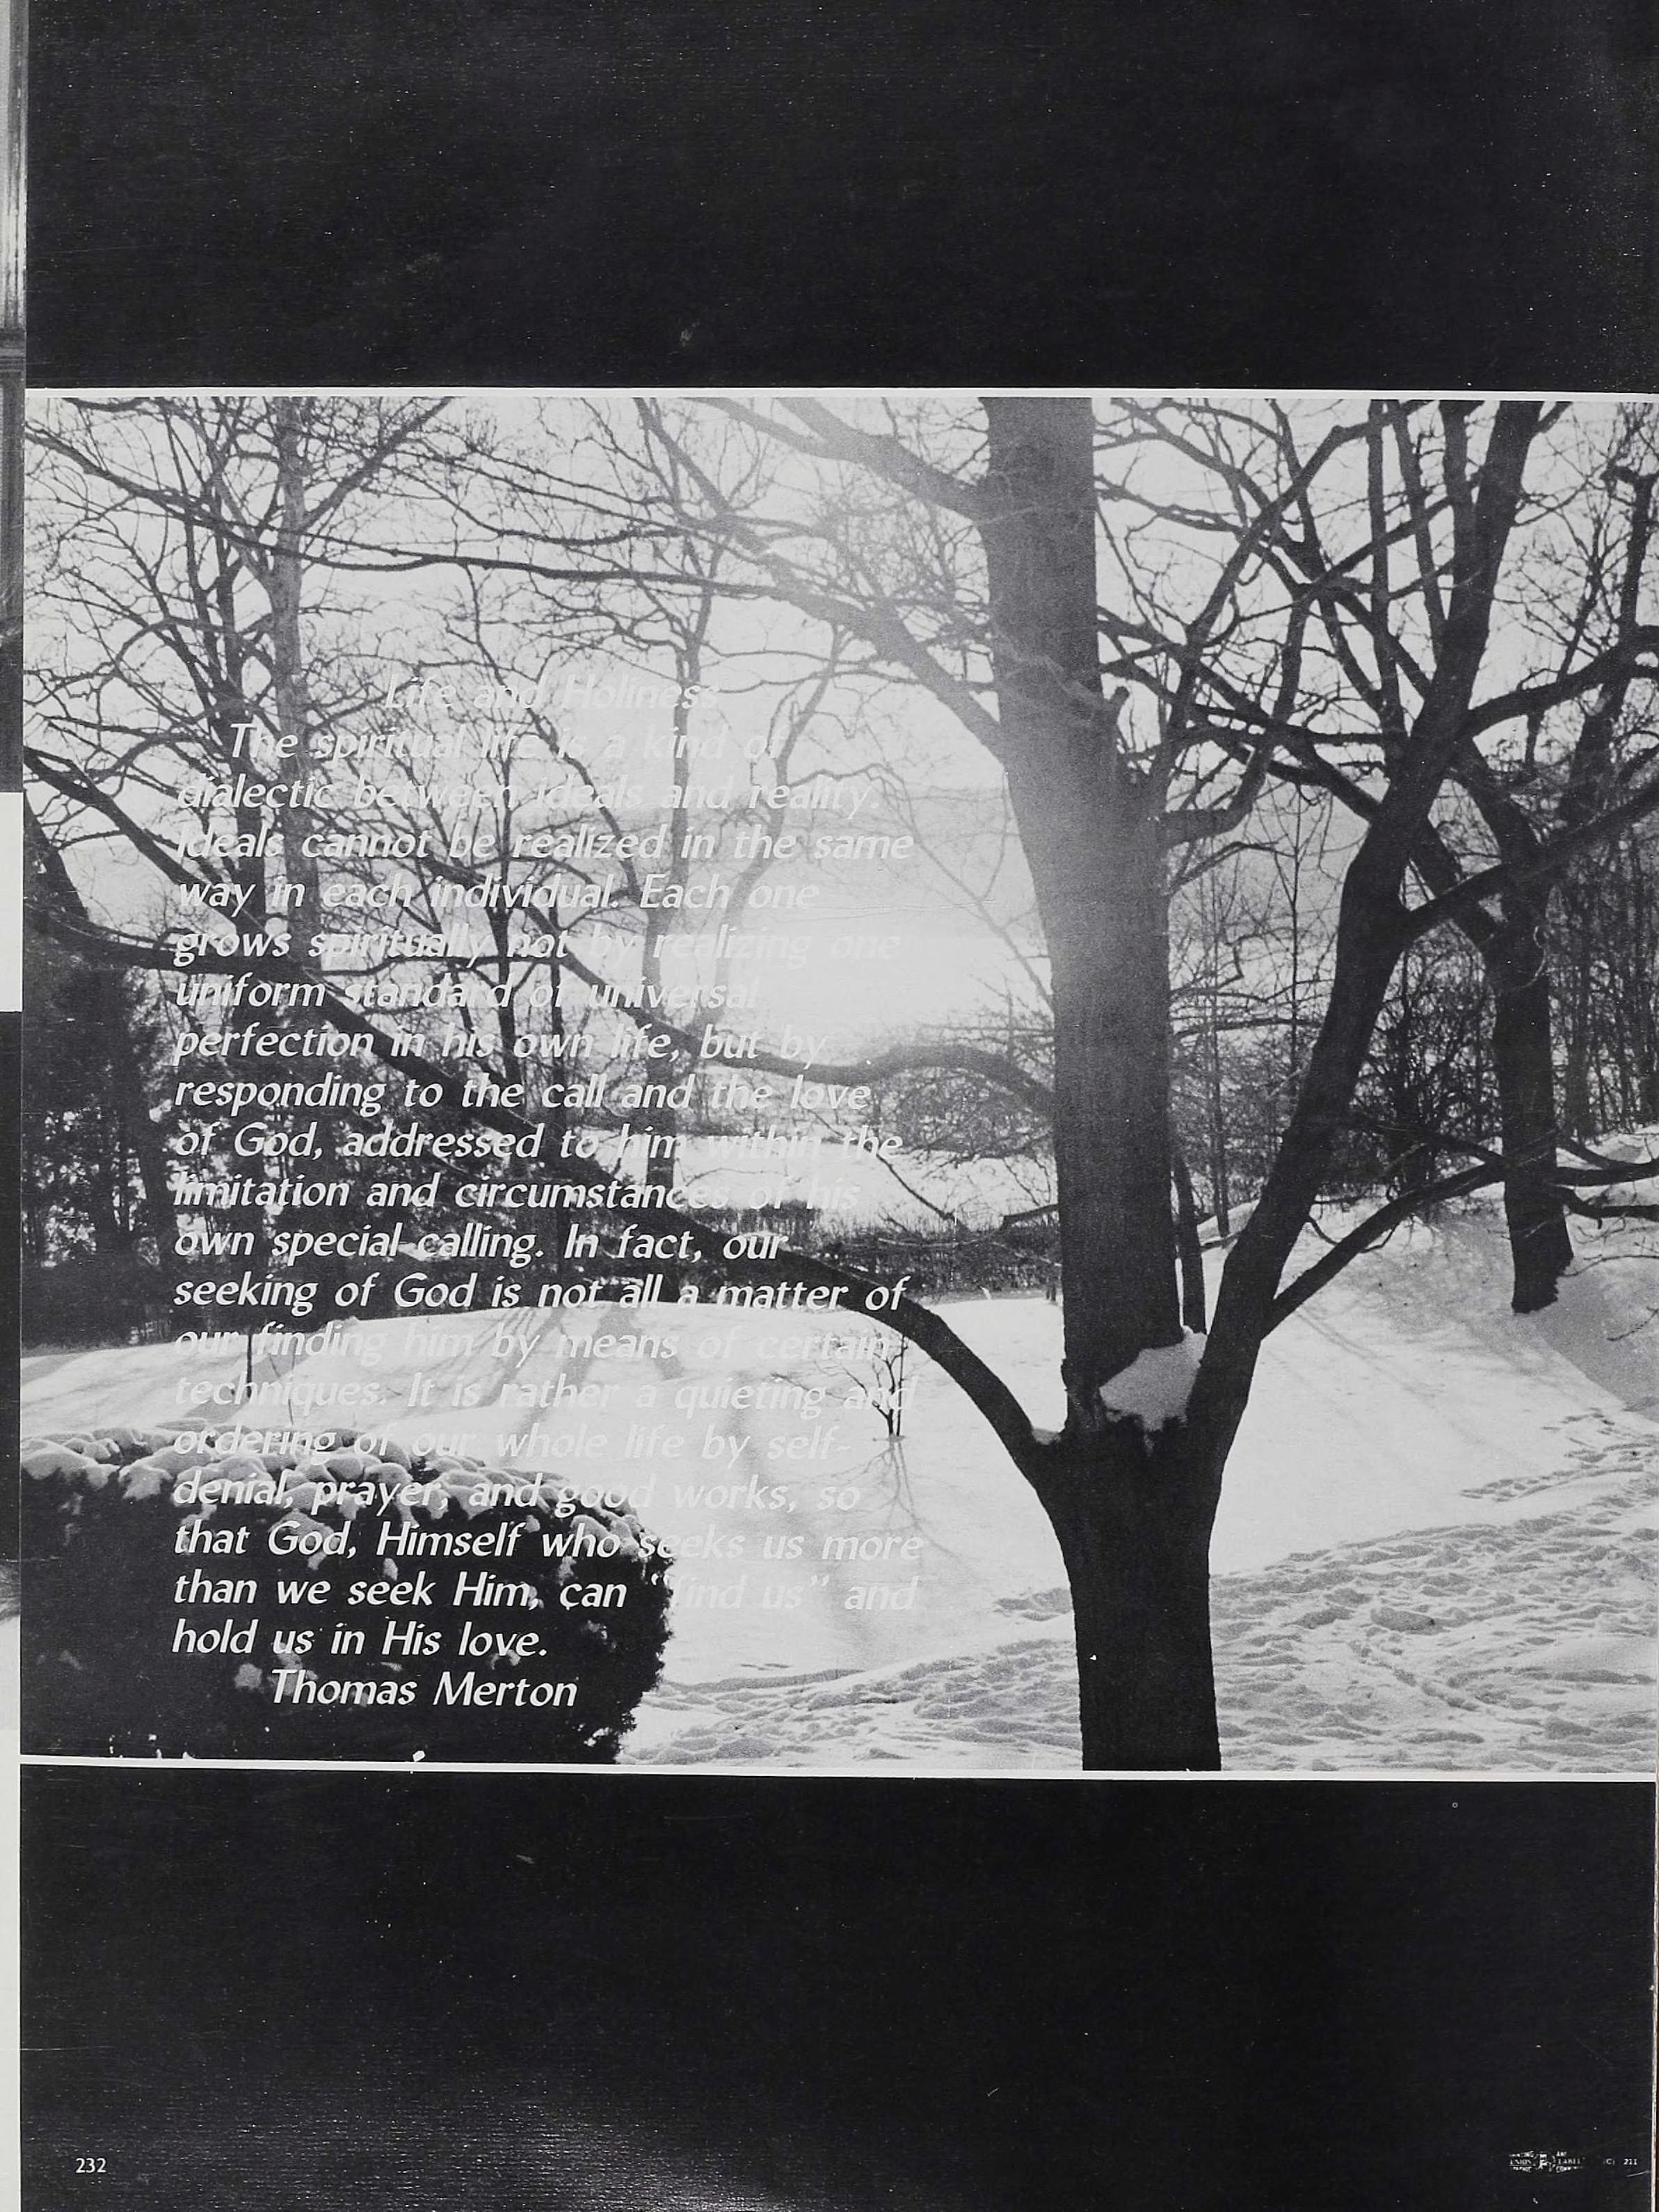 Life and Holiness
The spiritual life is a kind of
dialectic between ideals and reality.
Ideals cannot be realized in the same
way in each individual. Each one
grows spiritually not by realizing our
uniform standard of universal
perfection in his own life, but by
responding to the call and the love
of God, addressed to him within the
limitation and circumstances of his
own special calling. In fact, our
seeking of God is not all a matter of
our finding him by means of certain
techniques. It is rather a quieting and
ordering of our whole life by self-
denial, prayer, and good works, so
that God, Himself who seeks us more
than we seek Him, can "find us" and
hold us in His love.
Thomas Merton
232
211